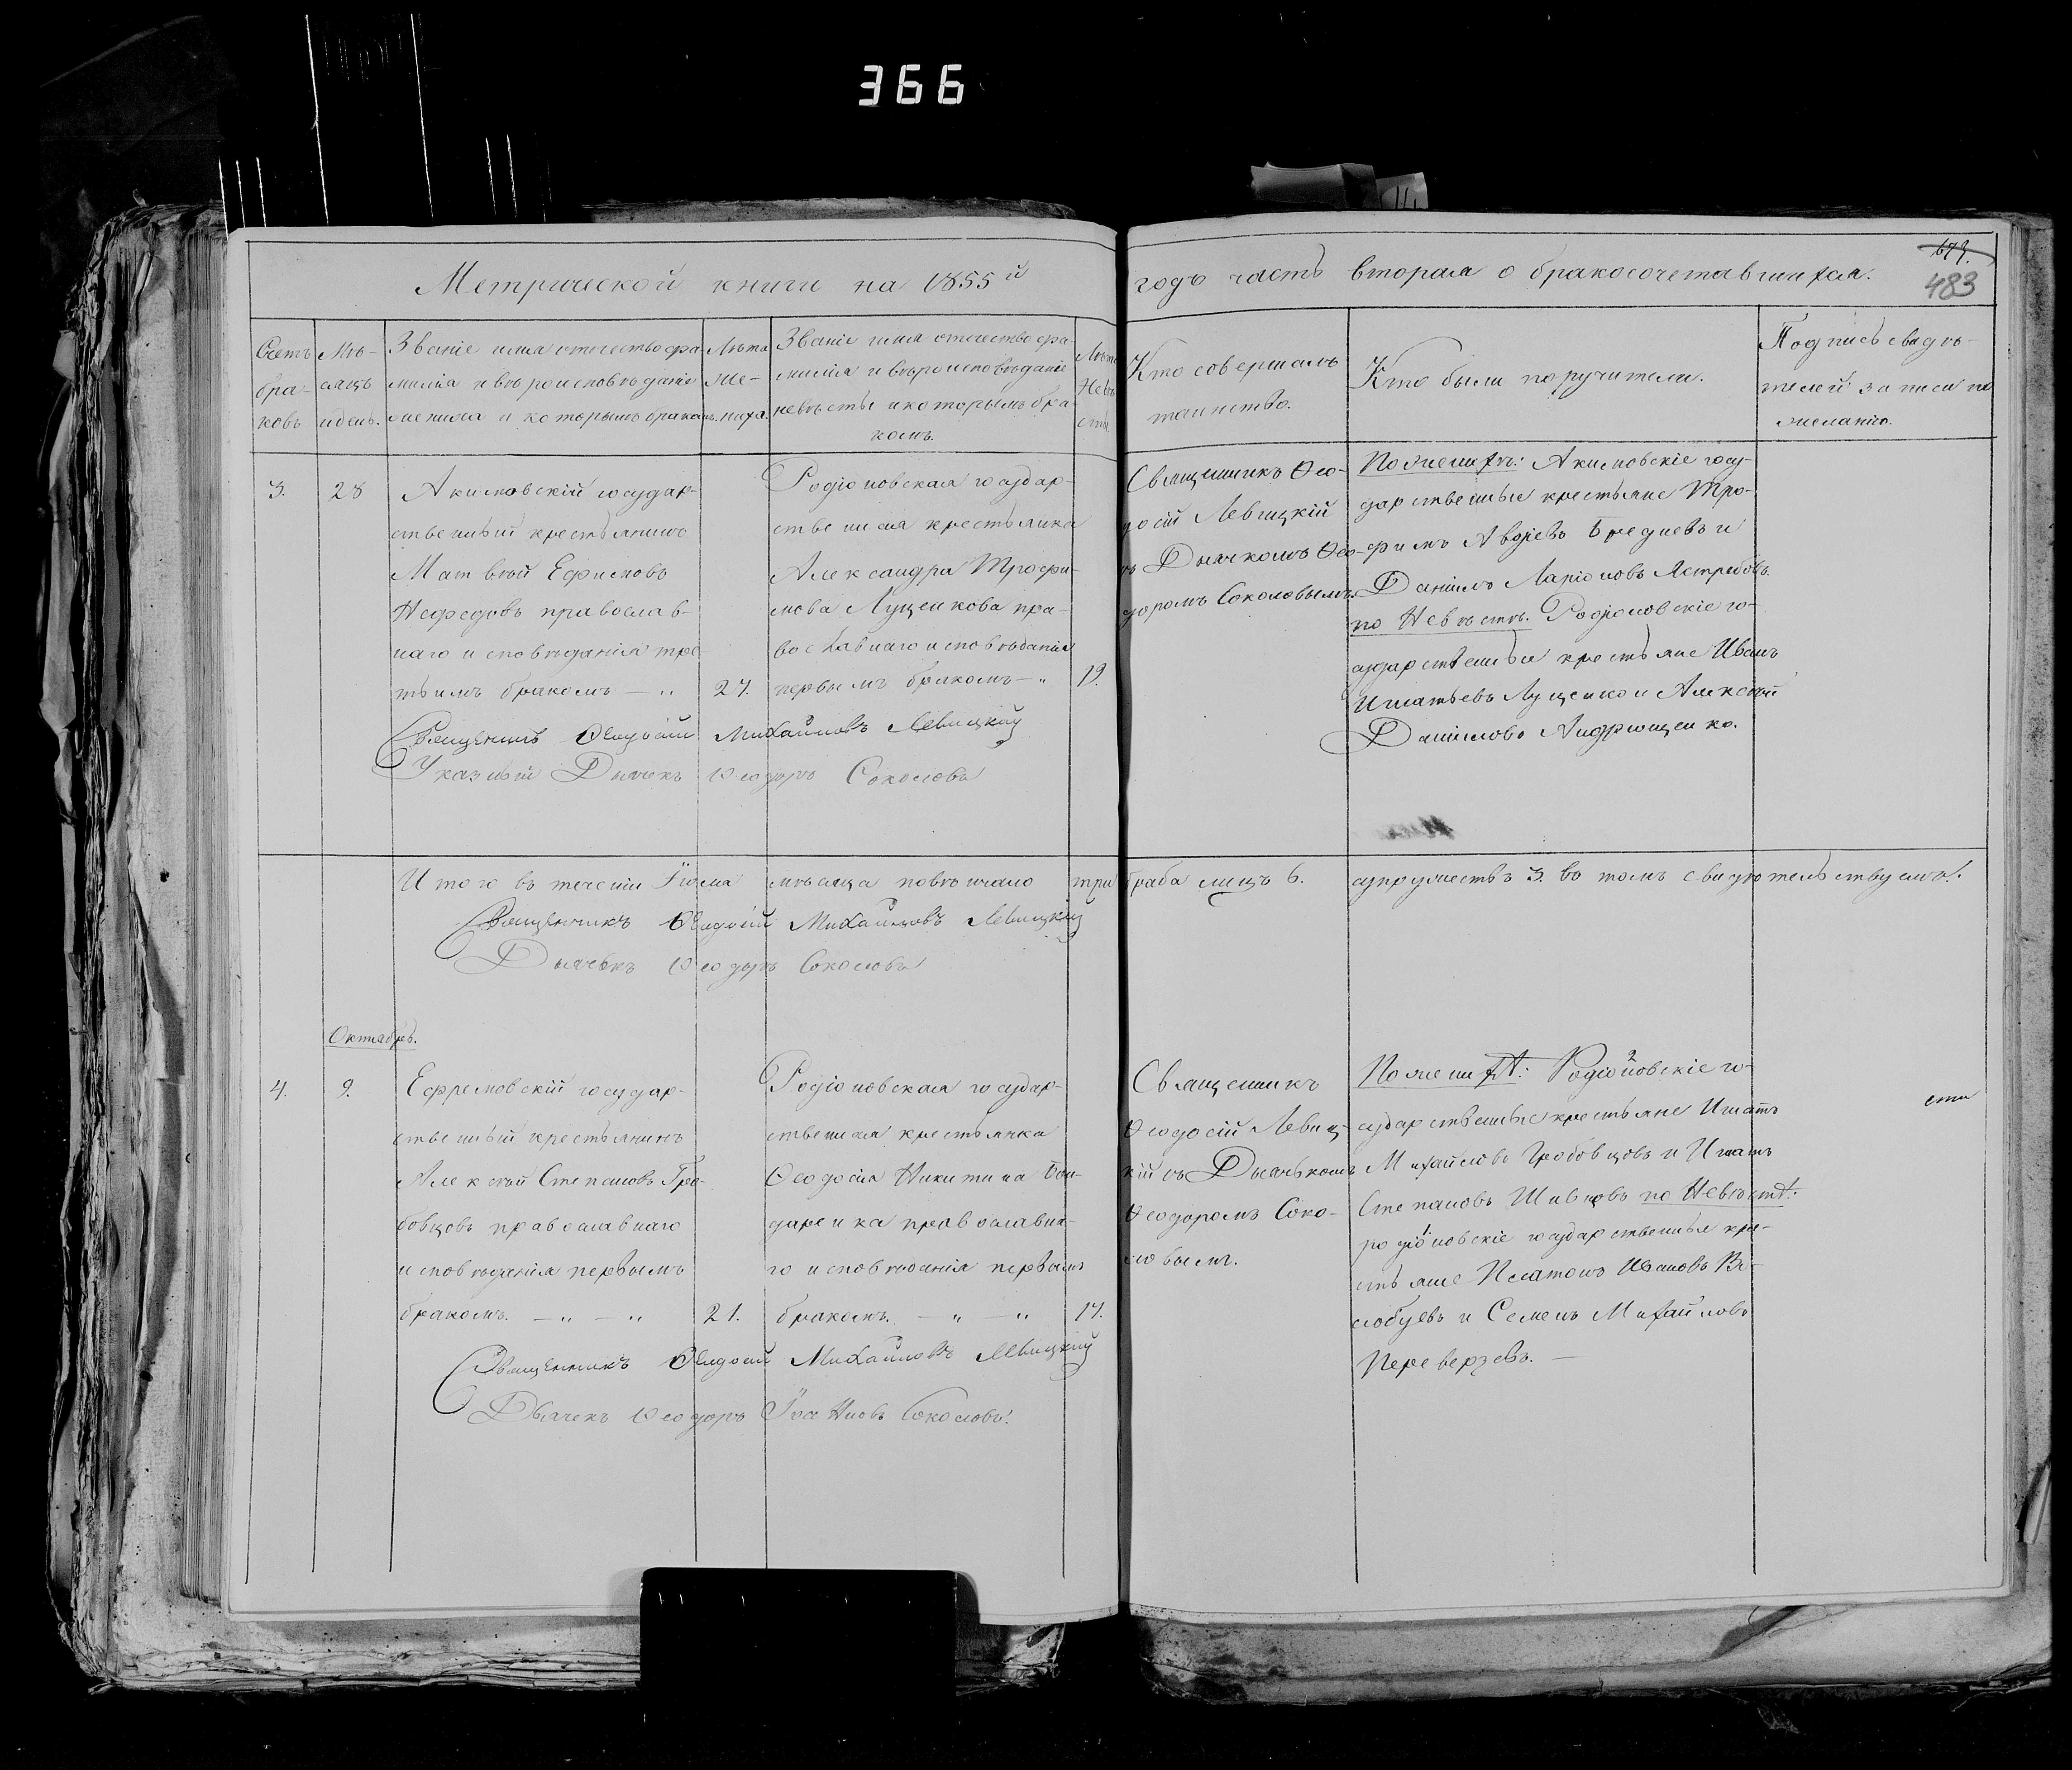 366
Метрической книги на 1855й
годъ часть вторая о бракосочетавшихся.
679.
483
Счетъ
бра-
ковъ
Мѣ-
сяцъ
и день.
Званіе имя отчество фа
милія и вѣроисповѣданіе
жениха и которымъ бракомъ.
Лѣта
же-
ниха.
Званіе имя отчество фа-
милія и вѣроисповѣданіе
невѣсты и которымъ бра-
комъ.
Лѣта
Невѣ
сты
Кто совершалъ
таинство.
Кто были поручители.
Подпись свидѣ-
телей записи по
желанію.
3.
28
Акимовскій государ-
ственный крестьянинъ
Матвѣй Ефимовъ
Нефедовъ православ-
наго исповѣданія тре
тьимъ бракомъ — „
27.
Родіоновская государ-
ственная крестьянка
Александра Трофи-
мова Луценкова пра-
вославнаго исповѣданія
первымъ бракомъ — „
19.
Священникъ Ѳео-
досій Левицкій
съ Дьячкомъ Ѳео-
доромъ Соколовымъ.
По женихѣ: Акимовскіе госу-
дарственные крестьяне Тро-
фимъ Бредневъ и
Данiилъ Ларіоновъ Ястребовъ.
по Невѣстѣ. Родіоновскіе го-
сударственные крестьяне Иванъ
Игнатьевъ Луценко и Алексѣй
Даниловъ Андрющенко.
Священникъ Ѳеодосій Михайловъ Левицкій
Указный Дьячекъ Ѳеодоръ Соколовъ
Итого въ теченіи Іюля мѣсяца повѣнчано три брака лицъ 6. супружествъ 3. въ томъ свидѣтельствуемъ:
Священникъ Ѳеодосій Михайловъ Левицкій
Дьячекъ Ѳеодоръ Соколовъ
Октябрь.
4.
9.
Ефремовскій государ-
ственный крестьянинъ
Алексѣй Степановъ Гро-
бовцовъ православнаго
исповѣданія первымъ
бракомъ. — „ — „
21.
Родіоновская государ-
ственная крестьянка
Ѳеодосія Никитина Бон-
даренка православна-
го исповѣданія первымъ
бракомъ. — „ — „
17.
Священникъ
Ѳеодосій Левиц-
кій съ Дьячькомъ
Ѳеодоромъ Соко-
ловымъ.
По женихѣ: Родіоновскіе го-
сударственные крестьяне Игнатъ
Михайловъ Гробовцовъ и Игнатъ
Степановъ Шивцовъ по Невѣстѣ:
родіоновскіе государственные кре-
стьяне Платонъ Ивановъ
и Семенъ Михайловъ
Переверзевъ. —
Священникъ Ѳеодосій Михайловъ Левицкій
Дьячекъ Ѳеодоръ Іоанновъ Соколовъ.